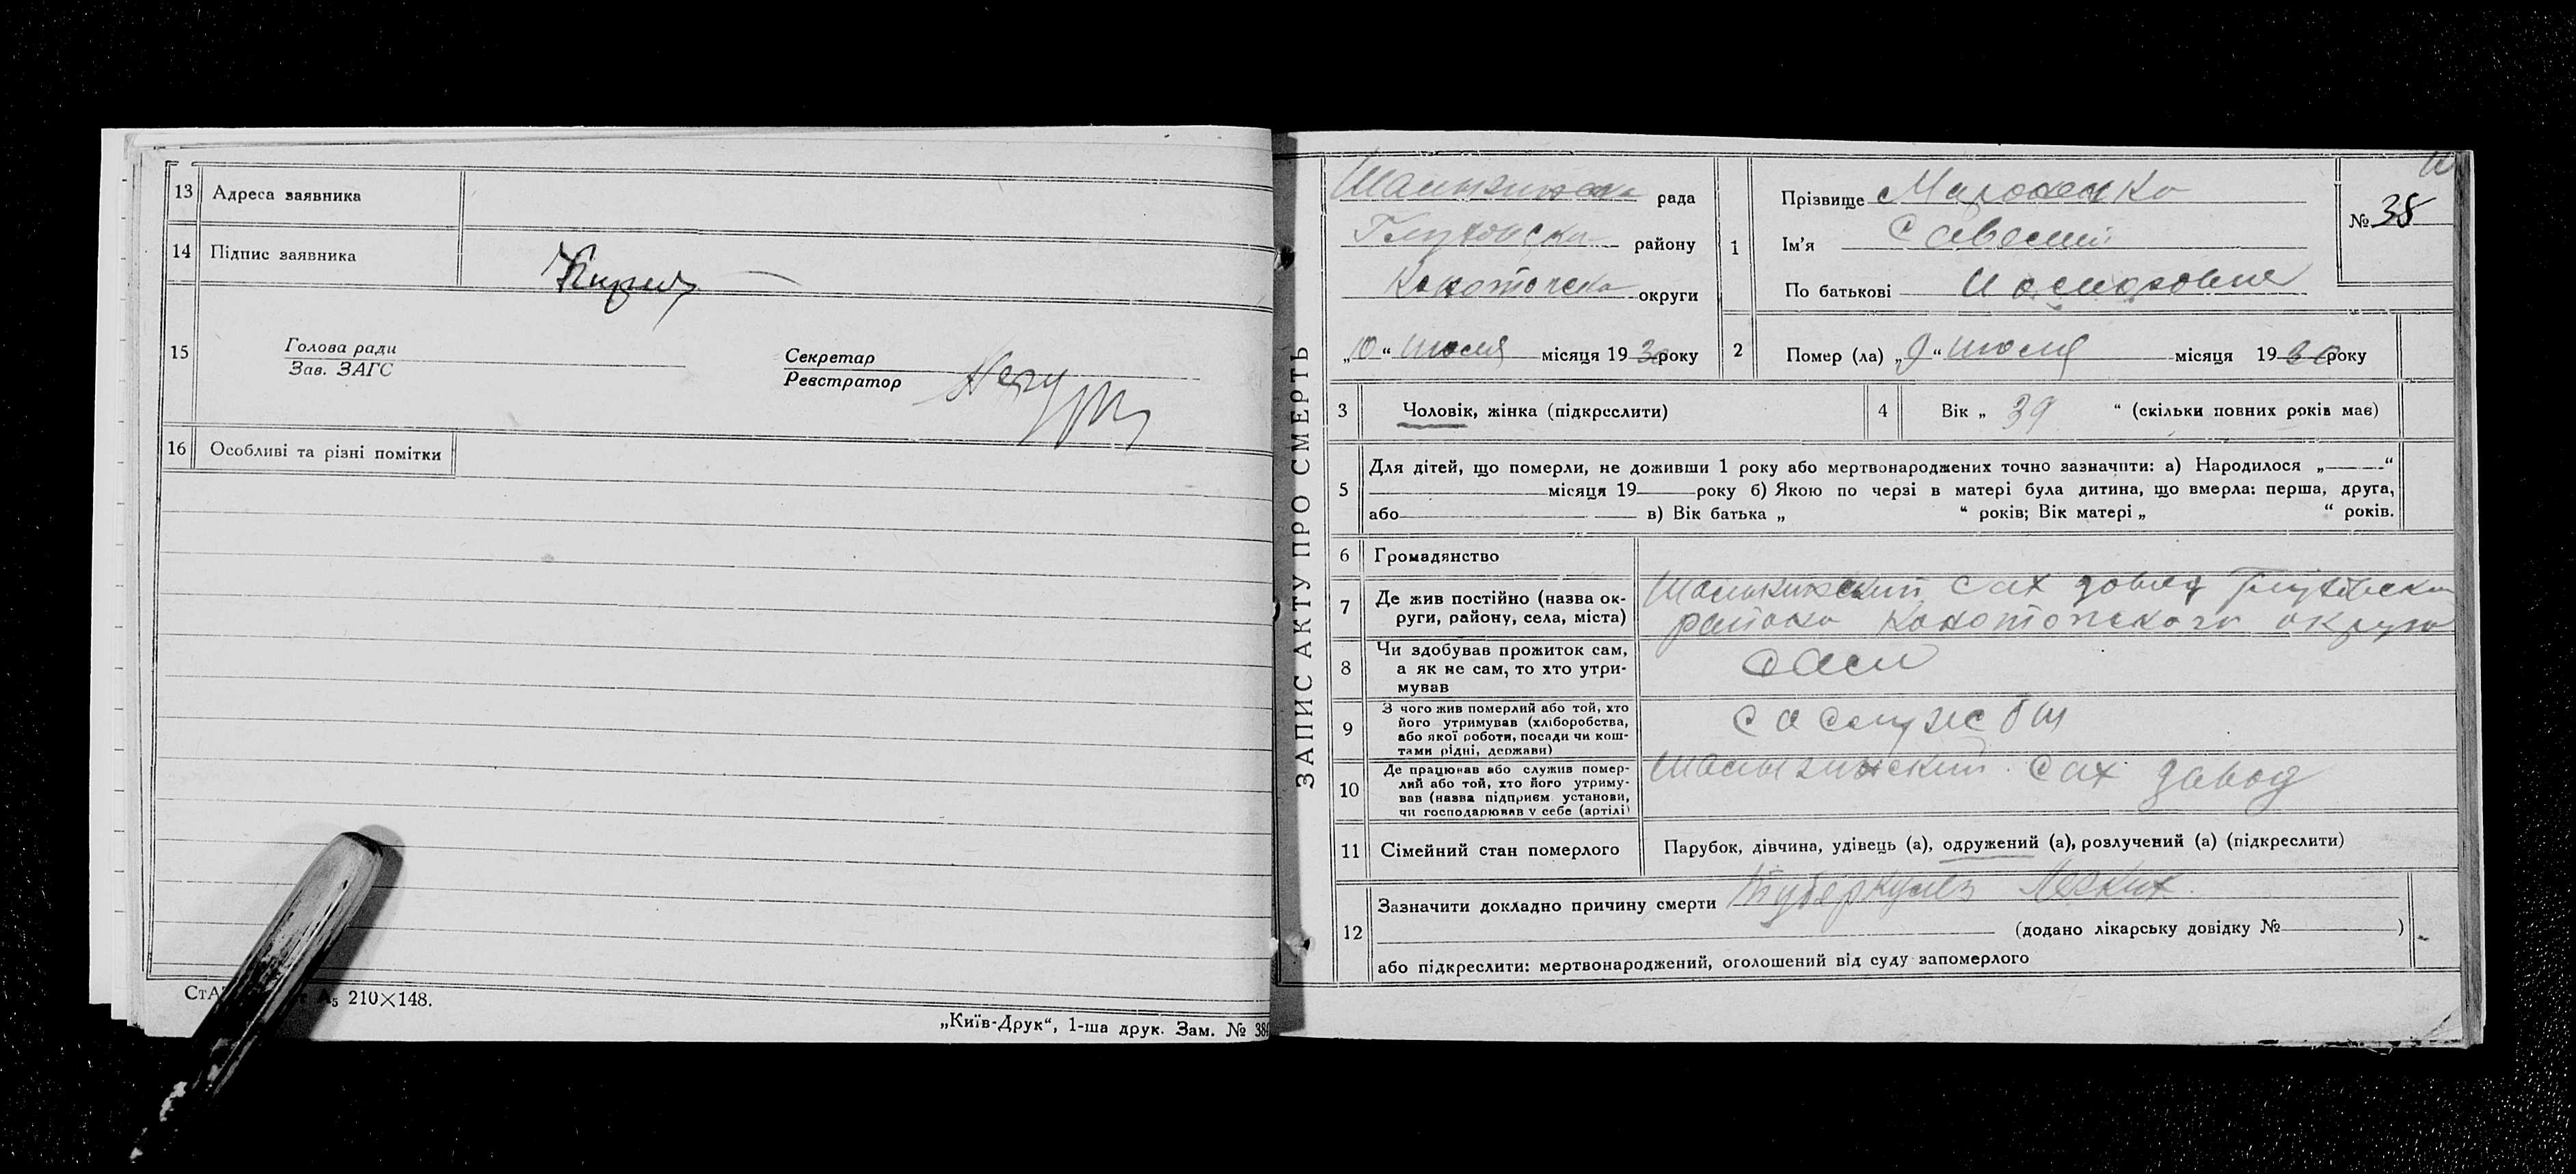 13 Адреса заявника
14 Підпис заявника
15 Голова ради
Зав. ЗАГС
Секретар
Реєстратор
16 Особливі та різні помітки
210×148.
„Київ-Друк“, 1-ша друк. Зам. №
ЗАПИС АКТУ ПРО СМЕРТЬ
рада
району
Конотопська округи
„10“ июля місяця 1930 року
1 Прізвище
Ім'я Савелий
По батькові
№ 38
2 Помер (ла) „9“ июля місяця 1930 року
3 Чоловік, жінка (підкреслити)
4 Вік „39“ (скільки повних років має)
5 Для дітей, що померли, не доживши 1 року або мертвонароджених точно зазначити: а) Народилося „ “
місяця 19 року б) Якою по черзі в матері була дитина, що вмерла: перша, друга,
або в) Вік батька „ “ років; Вік матері „ “ років.
6 Громадянство
7 Де жив постійно (назва округи, району, села, міста)
Шалыгинский сах завод Глуховского
района Конотопского округа
8 Чи здобував прожиток сам,
а як не сам, то хто утри-
мував
сам
9 З чого жив померлий або той, хто
його утримував (хліборобства,
або якої роботи, посади чи кош-
тами рідні, держави)
со службы
10 Де працював або служив помер-
лий або той, хто його утриму-
вав (назва підприєм. установи,
чи господарював у себе (артілі)
Шалыгинский сах завод
11 Сімейний стан померлого
Парубок, дівчина, удівець (а), одружений (а), розлучений (а) (підкреслити)
12 Зазначити докладно причину смерти Туберкулез Легких.
(додано лікарську довідку № )
або підкреслити: мертвонароджений, оголошений від суду запомерлого